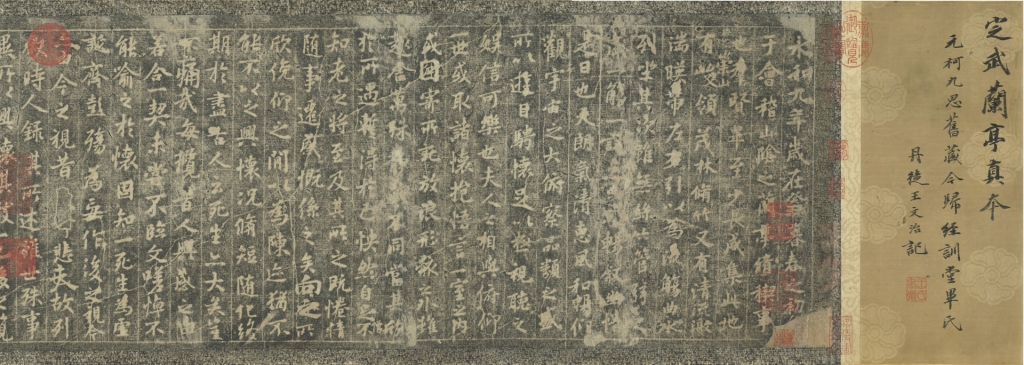 定武蘭亭真本
元柯九思舊藏今歸經訓堂畢氏
丹徒王文治記
永和九年歲在暮春之初
于會稽山陰之蘭亭脩稧事
也羣賢畢至少長咸集此地
有峻領茂林脩竹又有清流激
湍暎帶左右引以為流觴曲水
列坐其次雖無絲竹管絃之
盛一觴一詠亦足以暢敘幽情
是日也天朗氣清惠風和暢仰
觀宇宙之大俯察品類之盛
所以遊目騁懷足以極視聽之
娛信可樂也夫人之相與俯仰
一世或取諸懷抱悟言一室之內
或因寄所託放浪形骸之外雖
趣舍萬殊靜躁不同當其欣
於所遇暫得於己怏然自足不
知老之將至及其所之既惓情
隨事遷感慨係之矣向之所
欣俛仰之閒以為陳迹猶不
能不以之興懷況脩短隨化終
期於盡古人云死生亦大矣豈
不痛哉每攬昔人興感之由
若合一契未嘗不臨文嗟悼不
能喻之於懷固知一死生為虛
誕齊彭殤為妄作後之視今
今之視昔悲夫故列
時人錄其所述世殊事
異所以興懷其後之攬